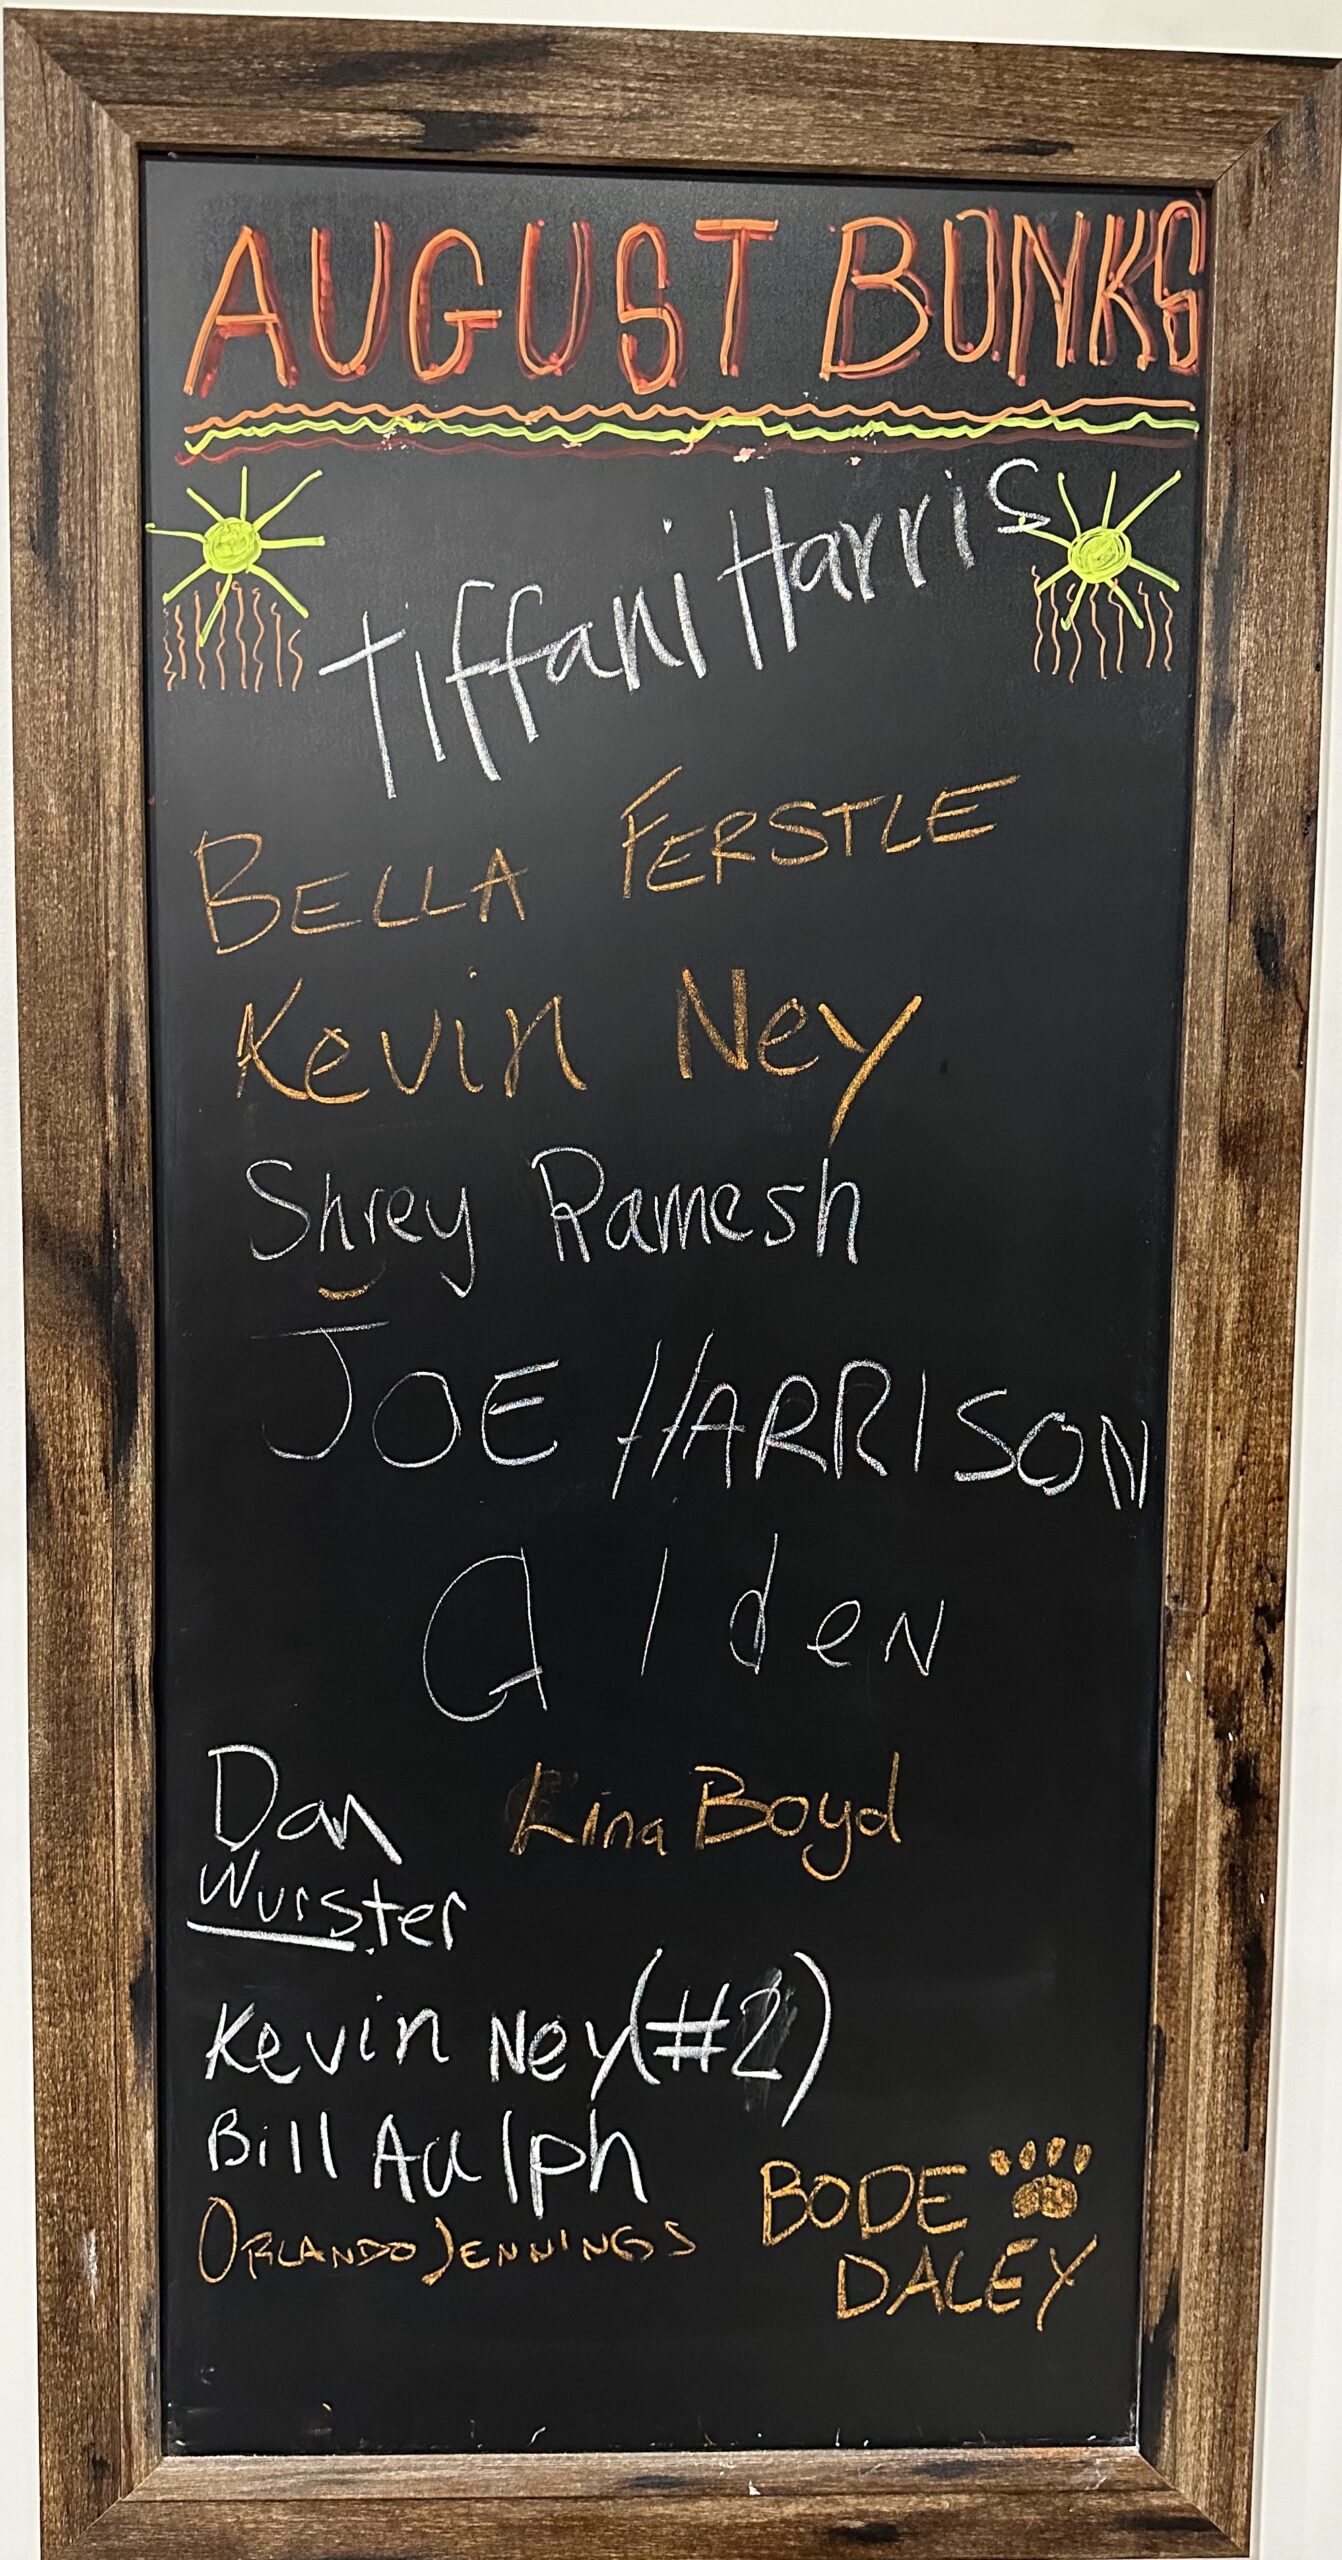 AUGUST BONKS
Tiffani Harris
BELLA FERSTLE
Kevin Ney
Shrey Ramesh
JOE HARRISON
Alden
Dan
Wurster
Lina Boyd
Kevin Ney (#2)
Bill Aulph
ORLANDO JENNINGS
BODE
DALEY